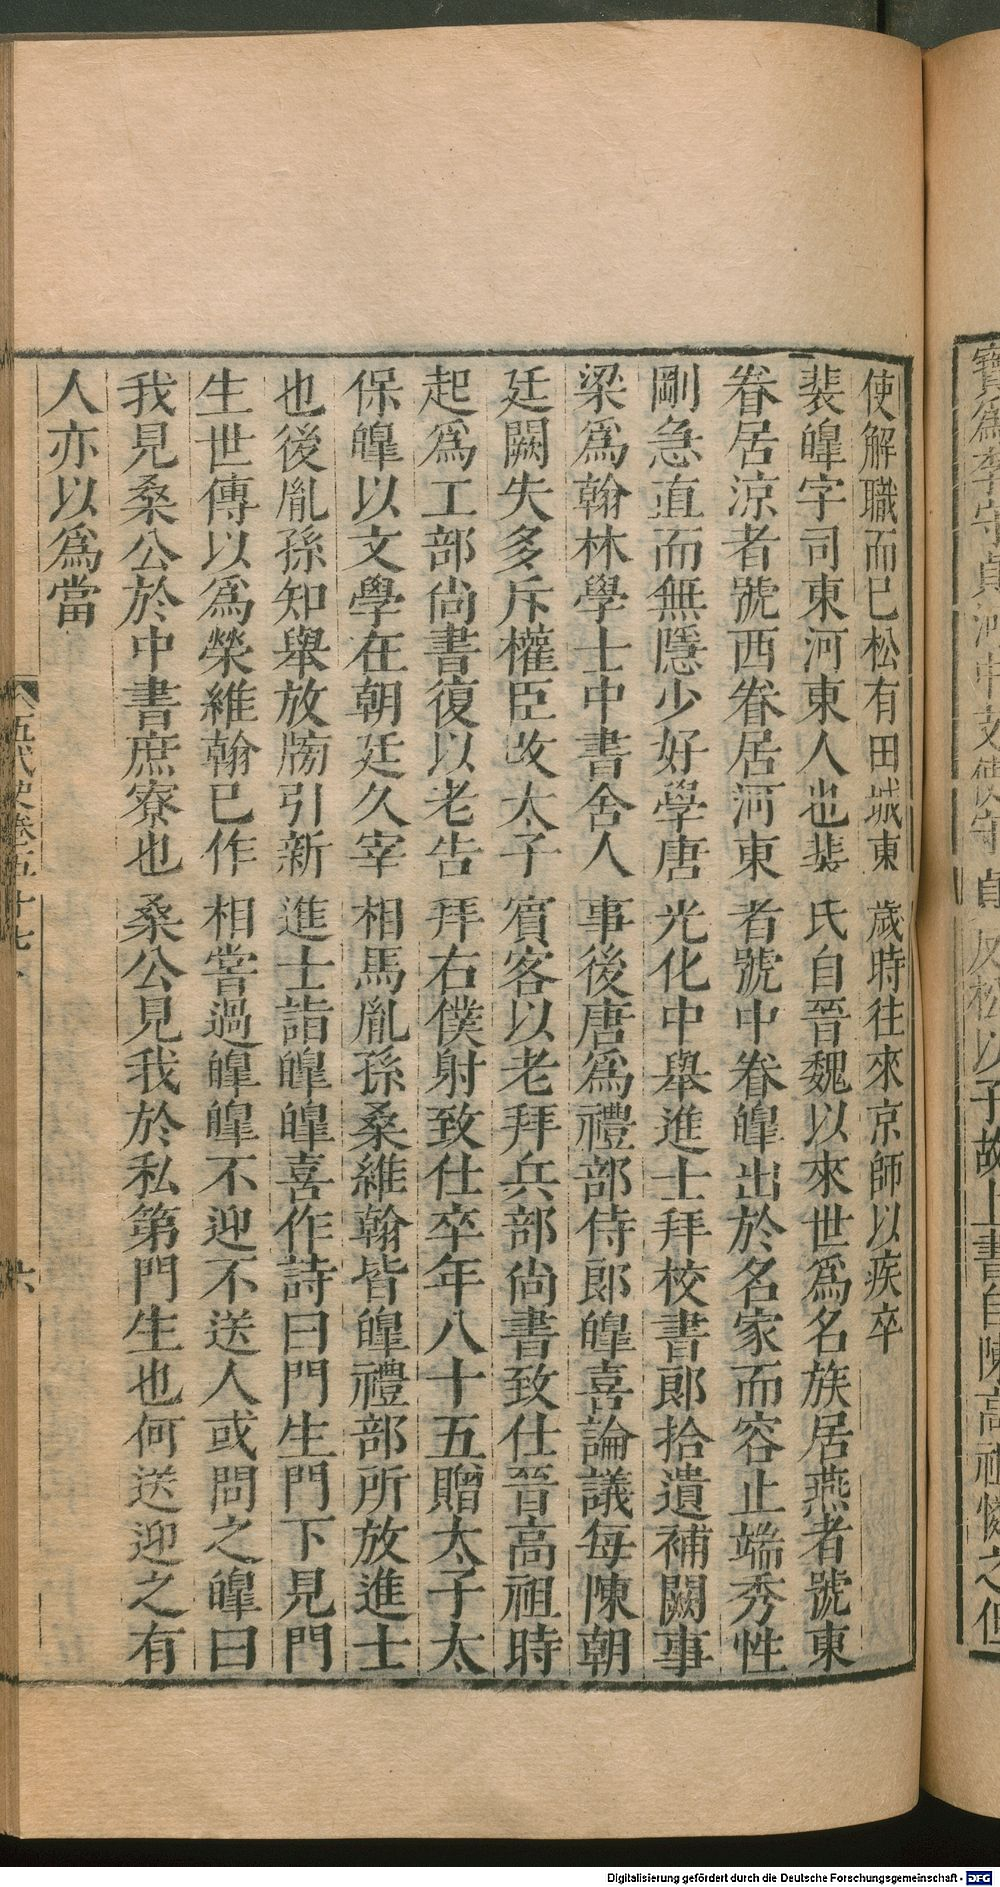 使解職而已松有田城東歲時往來京師以疾卒
裴皥字司東河東人也裴氏自晉魏以來世爲名族居燕者號東
眷居涼者號西眷居河東者號中眷皥出於名家而容止端秀性
剛急直而無隱少好學唐光化中舉進士拜校書郞拾遺補闕事
梁爲翰林學士中書舍人事後唐爲禮部侍郞皥喜論議每陳朝
廷闕失多斥權臣改太子賓客以老拜兵部尙書致仕晉高祖時
起爲工部尙書復以老告拜右僕射致仕卒年八十五贈太子太
保皥以文學在朝廷久宰相馬胤孫桑維翰皆皥禮部所放進士
也後胤孫知舉放牓引新進士詣皥皥喜作詩曰門生門下見門
生世傳以爲榮維翰已作相嘗過皥皥不迎不送人或問之皥曰
我見桑公於中書庶寮也桑公見我於私第門生也何送迎之有
人亦以爲當
五代史卷五十七
六
Digitalisierung gefördert durch die Deutsche Forschungsgemeinschaft - DFG